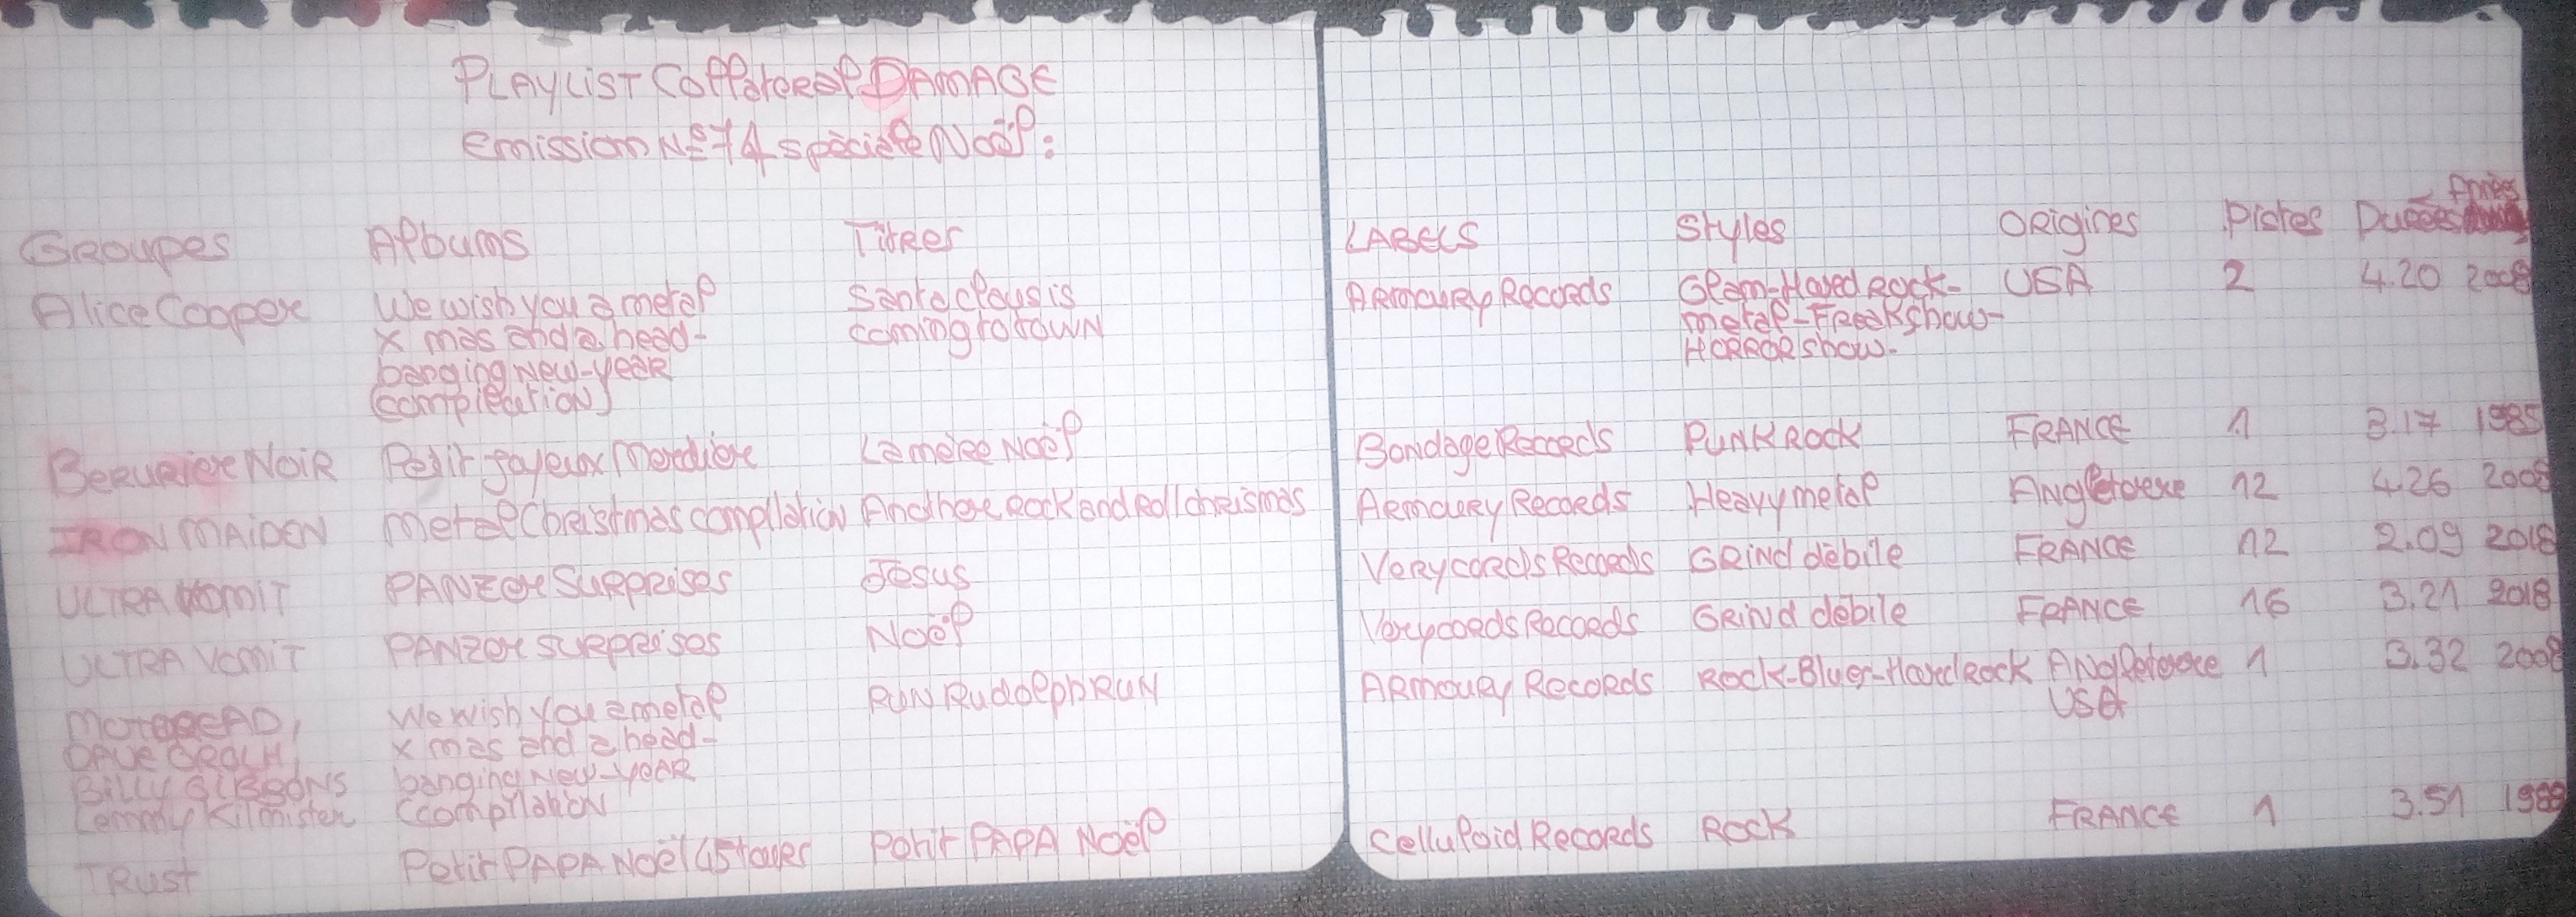 PLAYLIST Collateral DAMAGE
emission N°74 spéciale Noël :
Groupes Albums Titres LABELS Styles ORigines Pistes Durées Années
Alice Cooper We wish you a metal Santa claus is ARmouRy Records Glam-Hared Rock- USA 2 4.20 2008
x mas and a head- coming to town metal-FreakShow-
banging New-yeaR HORROR show.
(compilation)
BeRuRier NoiR Petit joyeux Merdier La mère Noël Bondage Records PUNK ROCK FRANCE 1 3.17 1985
IRON MAIDEN Metal Christmas compilation Another Rock and Roll chrismas Armoury Records Heavy metal Angleterre 12 4.26 2008
ULTRA VOMIT PANZER SuRprises Jésus Verycords Records GRind débile FRANCE 12 2.09 2018
ULTRA VomiT PANZER SuRprises Noël Verycords Records GRind débile FRANCE 16 3.21 2018
MOTORHEAD, We wish you a metal RUN Rudolph RUN ARmouRy Records Rock-Blues-Hard Rock Angleterre 1 3.32 2008
DAVE GROLH, x mas and a head- USA
BiLLY GIBBONS banging New-yeaR
Lemmy Kilmister (compilation
TRust Petit PAPA Noël 45 tours Petit PAPA Noël Celluloid Records Rock FRANCE 1 3.51